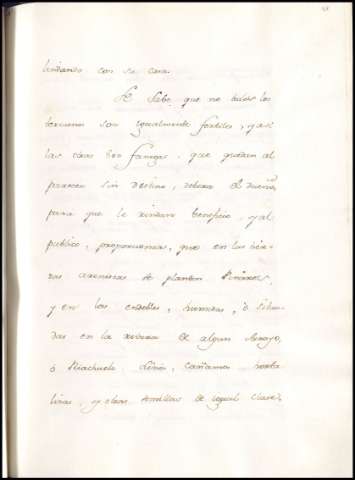 lindantes con su casa.
Se Sabe, que no todos los
terrenos son ygualmente fertiles, y asi
las cinco fanegas, que quedan al
parecer sin destino, deberá el dueño,
para que le rindan beneficio, y al
publico, proporcionar, que en las tier-
ras areniscas se planten Pinares,
y en los endebles, humedas, ó situa-
das en la rivera de algun Arroyo,
ó Riachuelo, Linos, Cañamos, horta
lizas, y otras Semillas de ygual clase,